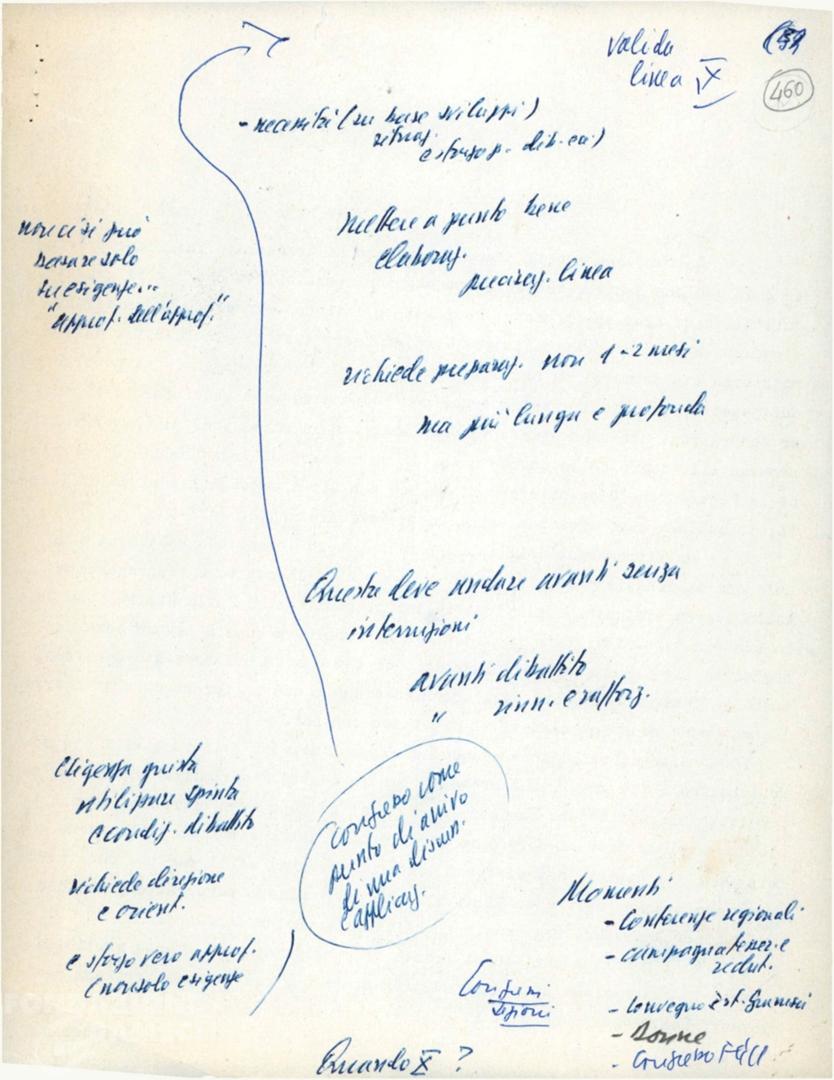 valida
linea X
460
- necessità (su base sviluppi)
situaz.
e sforzo p. dib. ea)
mettere a punto bene
elaboraz.
precisaz. linea
non ci si può
basare solo
su esigenze..
"approf. dell'approf."
richiede preparaz. non 1-2 mesi
ma più lunga e profonda
Questa deve andare avanti senza
interruzioni
avanti dibattito
" rinn. e rafforz.
esigenza giusta
utilizzare spinta
e condiz. dibattito
richiede direzione
e orient.
e sforzo vero approf.
(non solo esigenze
Congresso come
punto di arrivo
di una discuss.
e applicaz.
Momenti
- Conferenze regionali
- campagna tess. e
reclut.
- Convegno Ist. Gramsci
- Donne
- Congresso FGCI
Congressi
sezioni
Quando X ?